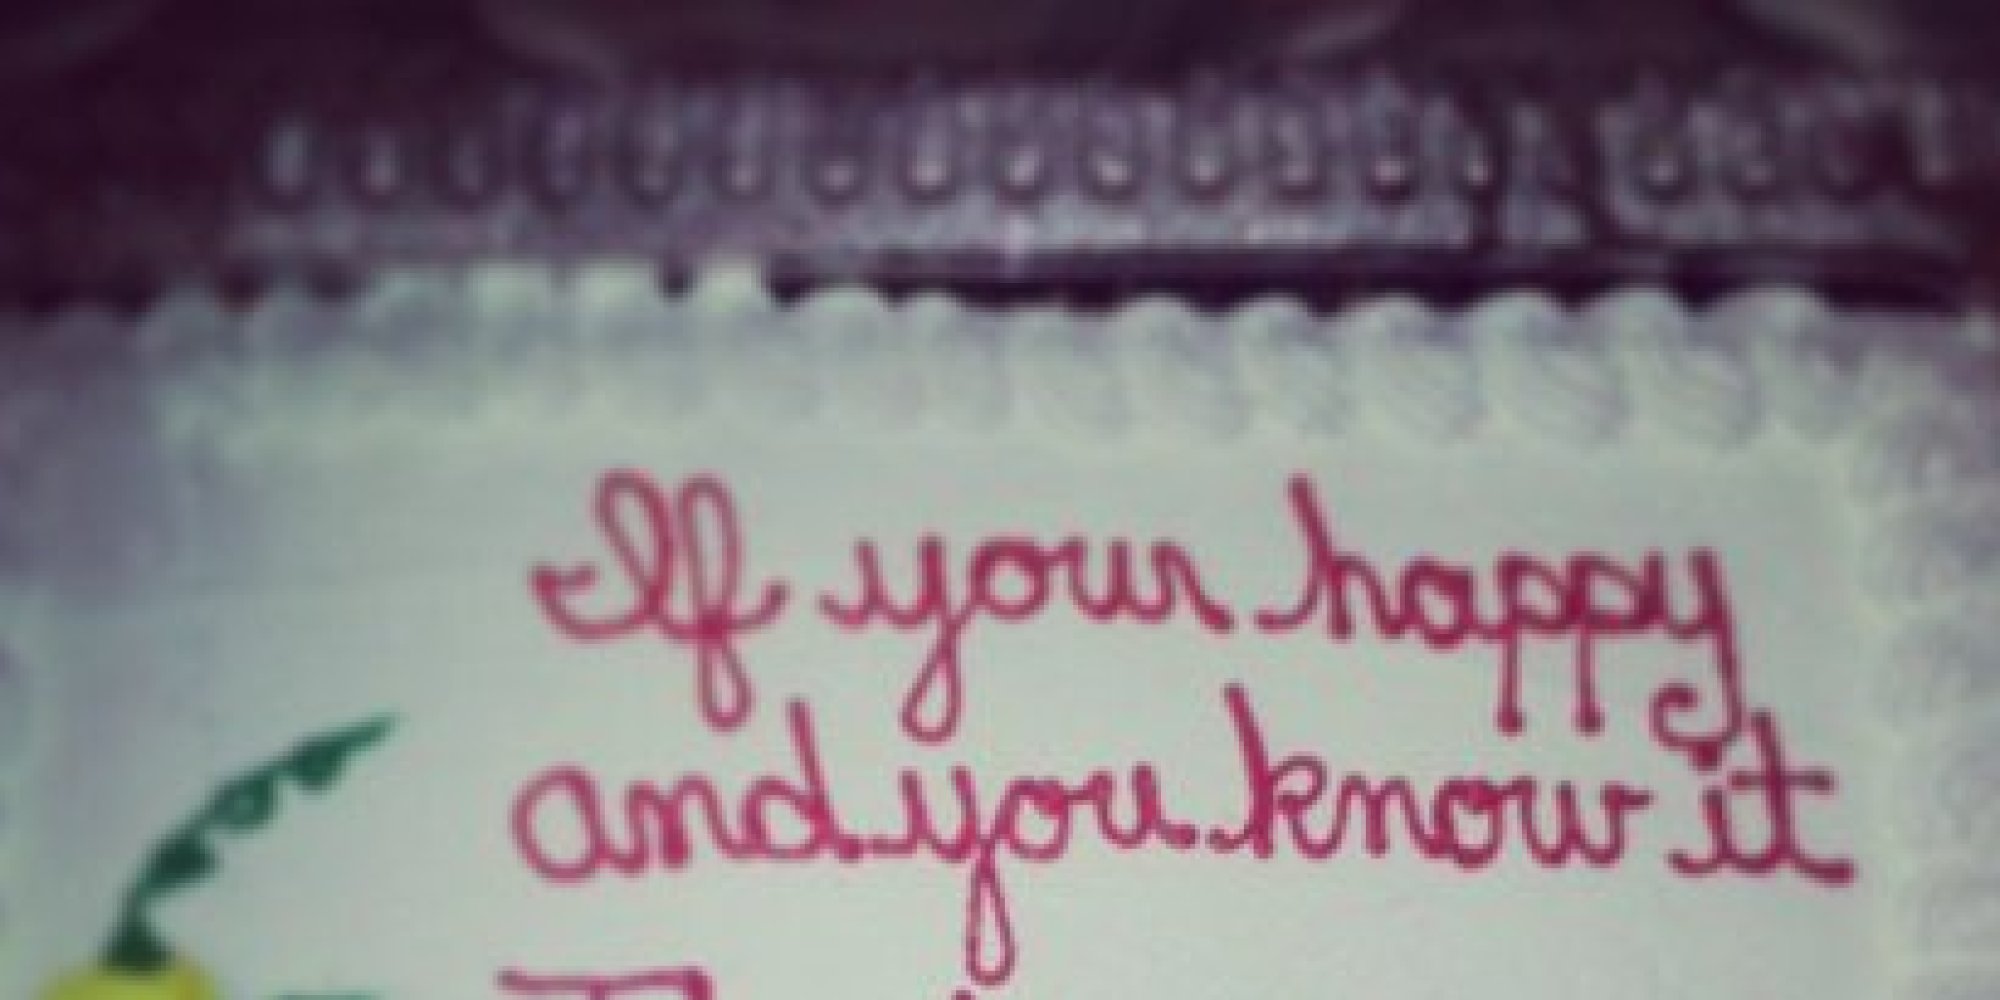 If your happy
and you know it